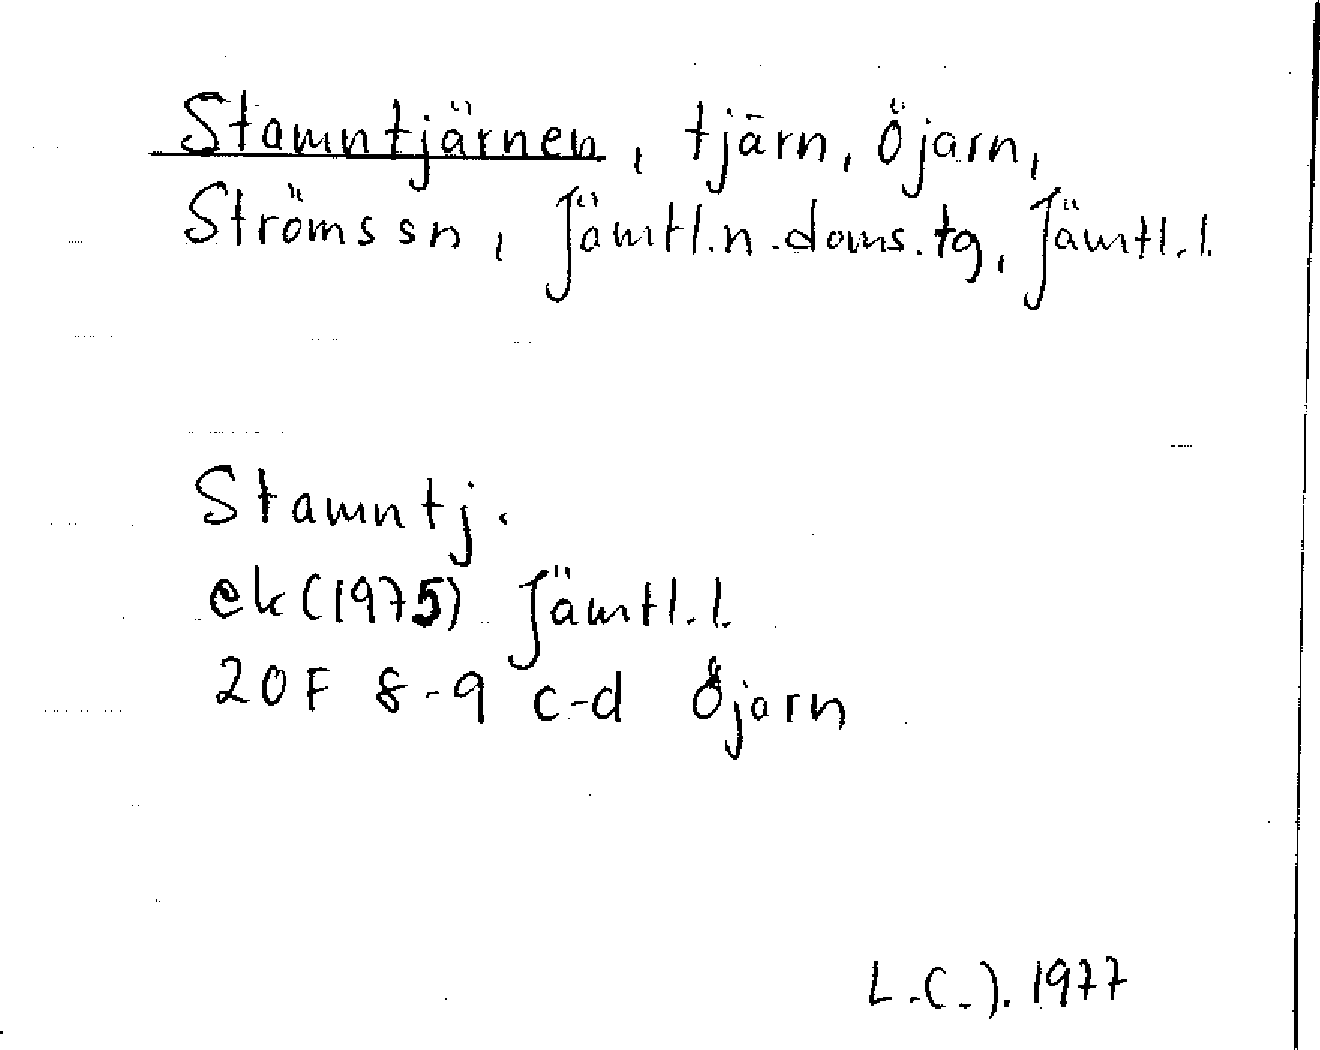 Stamntjärnen, tjärn, Öjarn,
Strömssn, Jämtl.n.doms.tg, Jämtl.l.
Stamntj.
ek(1975) Jämtl.l.
20F 8-9 c-d Öjarn
1977